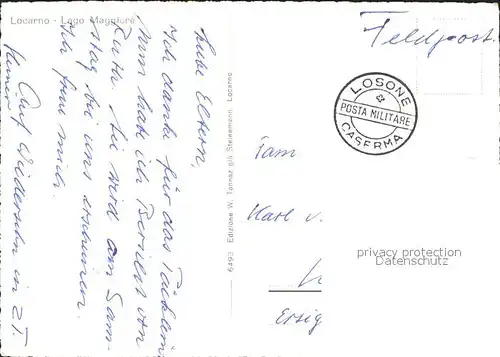 Locarno - Lago Maggiore
Liebe Eltern,
Ich danke für das Päckli
Nun habe ich Bericht von
Ruth. Sie wird am Sam-
stag bei uns erscheinen.
Ich freu mich.
Auf Wiedersehn in 2 T.
6493 Edizione W. Tannaz già Steinemann, Locarno
Feldpost.
LOSONE
POSTA MILITARE
CASERMA
Fam
Karl v.
Ersig
privacy protection
Datenschutz